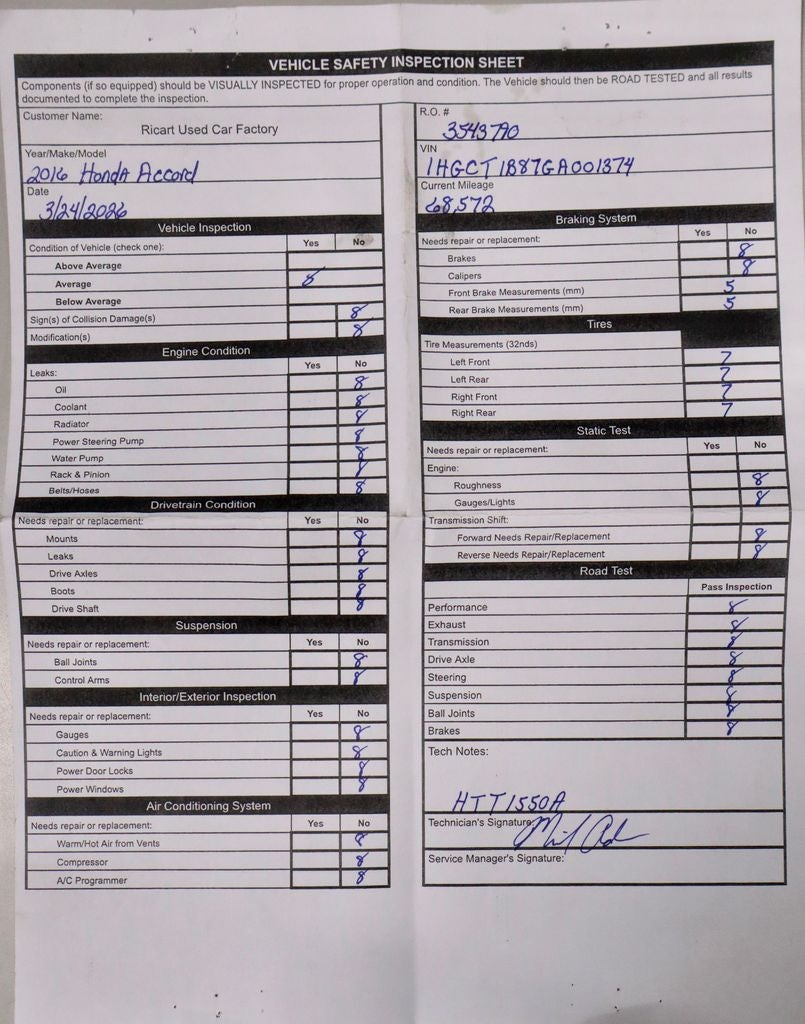 VEHICLE SAFETY INSPECTION SHEET
Components (if so equipped) should be VISUALLY INSPECTED for proper operation and condition. The Vehicle should then be ROAD TESTED and all results
documented to complete the inspection.
Customer Name:
Ricart Used Car Factory
Year/Make/Model
2016 Honda Accord
Date
3/24/2026
Vehicle Inspection
Condition of Vehicle (check one): Yes No
Above Average
Average 8
Below Average
Sign(s) of Collision Damage(s) 8
Modification(s) 8
Engine Condition
Leaks: Yes No
Oil 8
Coolant 8
Radiator 8
Power Steering Pump 8
Water Pump 8
Rack & Pinion 8
Belts/Hoses 8
Drivetrain Condition
Needs repair or replacement: Yes No
Mounts 8
Leaks 8
Drive Axles 8
Boots 8
Drive Shaft 8
Suspension
Needs repair or replacement: Yes No
Ball Joints 8
Control Arms 8
Interior/Exterior Inspection
Needs repair or replacement: Yes No
Gauges 8
Caution & Warning Lights 8
Power Door Locks 8
Power Windows 8
Air Conditioning System
Needs repair or replacement: Yes No
Warm/Hot Air from Vents 8
Compressor 8
A/C Programmer 8
R.O. #
3543790
VIN
1HGCT1B87GA001374
Current Mileage
68,572
Braking System
Needs repair or replacement: Yes No
Brakes 8
Calipers 8
Front Brake Measurements (mm) 5
Rear Brake Measurements (mm) 5
Tires
Tire Measurements (32nds)
Left Front 7
Left Rear 7
Right Front 7
Right Rear 7
Static Test
Needs repair or replacement: Yes No
Engine:
Roughness 8
Gauges/Lights 8
Transmission Shift:
Forward Needs Repair/Replacement 8
Reverse Needs Repair/Replacement 8
Road Test
Pass Inspection
Performance 8
Exhaust 8
Transmission 8
Drive Axle 8
Steering 8
Suspension 8
Ball Joints 8
Brakes 8
Tech Notes:
HTT1550A
Technician's Signature:
Service Manager's Signature: